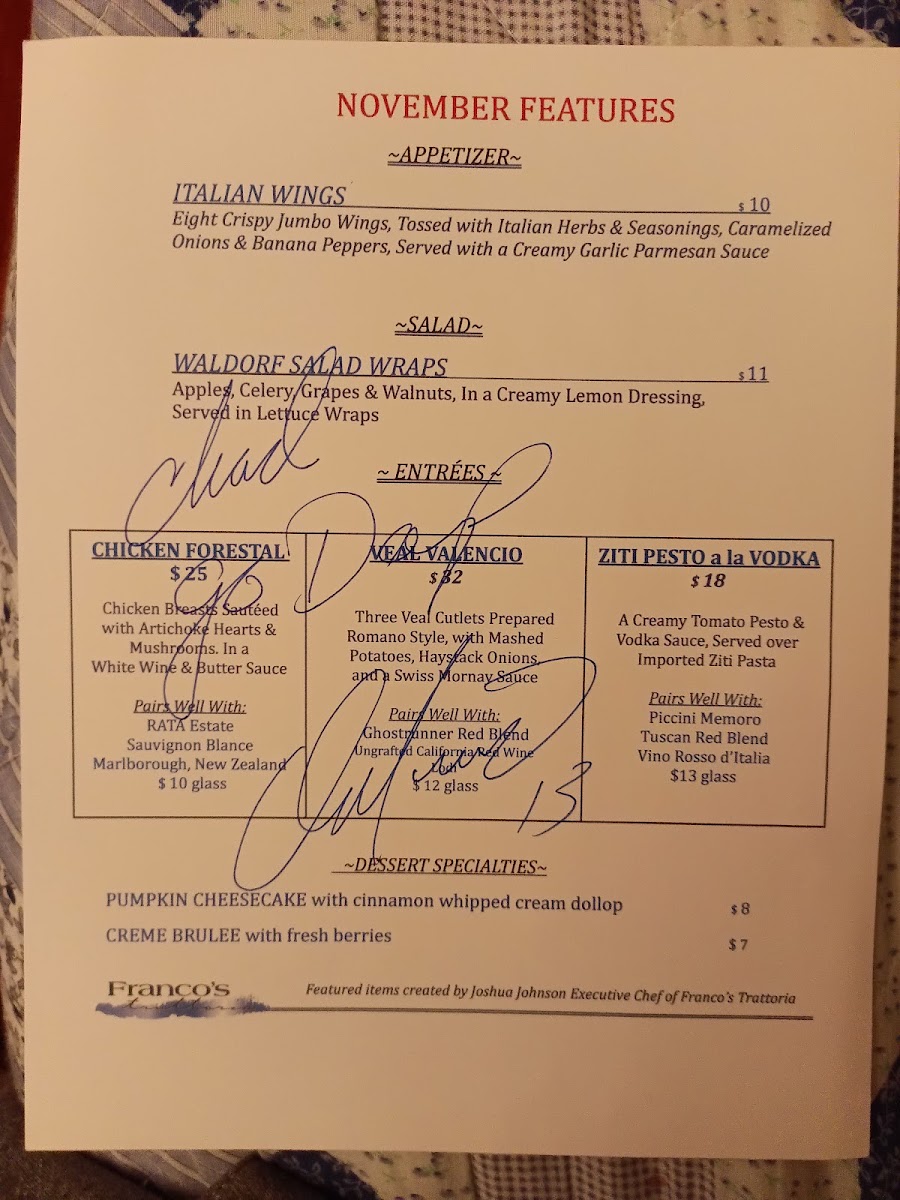 NOVEMBER FEATURES
~APPETIZER~
ITALIAN WINGS $ 10
Eight Crispy Jumbo Wings, Tossed with Italian Herbs & Seasonings, Caramelized
Onions & Banana Peppers, Served with a Creamy Garlic Parmesan Sauce
~SALAD~
WALDORF SALAD WRAPS $ 11
Apples, Celery, Grapes & Walnuts, In a Creamy Lemon Dressing,
Served in Lettuce Wraps
Chad
~ ENTRÉES ~
go
CHICKEN FORESTAL
$ 25
Chicken Breasts Sautéed
with Artichoke Hearts &
Mushrooms. In a
White Wine & Butter Sauce
Pairs Well With:
RATA Estate
Sauvignon Blance
Marlborough, New Zealand
$ 10 glass
VEAL VALENCIO
$ 32
Three Veal Cutlets Prepared
Romano Style, with Mashed
Potatoes, Haystack Onions,
and a Swiss Mornay Sauce
Pairs Well With:
Ghostrunner Red Blend
Ungrafted California Red Wine
Lodi
$ 12 glass
ZITI PESTO a la VODKA
$ 18
A Creamy Tomato Pesto &
Vodka Sauce, Served over
Imported Ziti Pasta
Pairs Well With:
Piccini Memoro
Tuscan Red Blend
Vino Rosso d'Italia
$13 glass
13
~DESSERT SPECIALTIES~
PUMPKIN CHEESECAKE with cinnamon whipped cream dollop $ 8
CREME BRULEE with fresh berries $ 7
Franco's
trattoria
Featured items created by Joshua Johnson Executive Chef of Franco's Trattoria